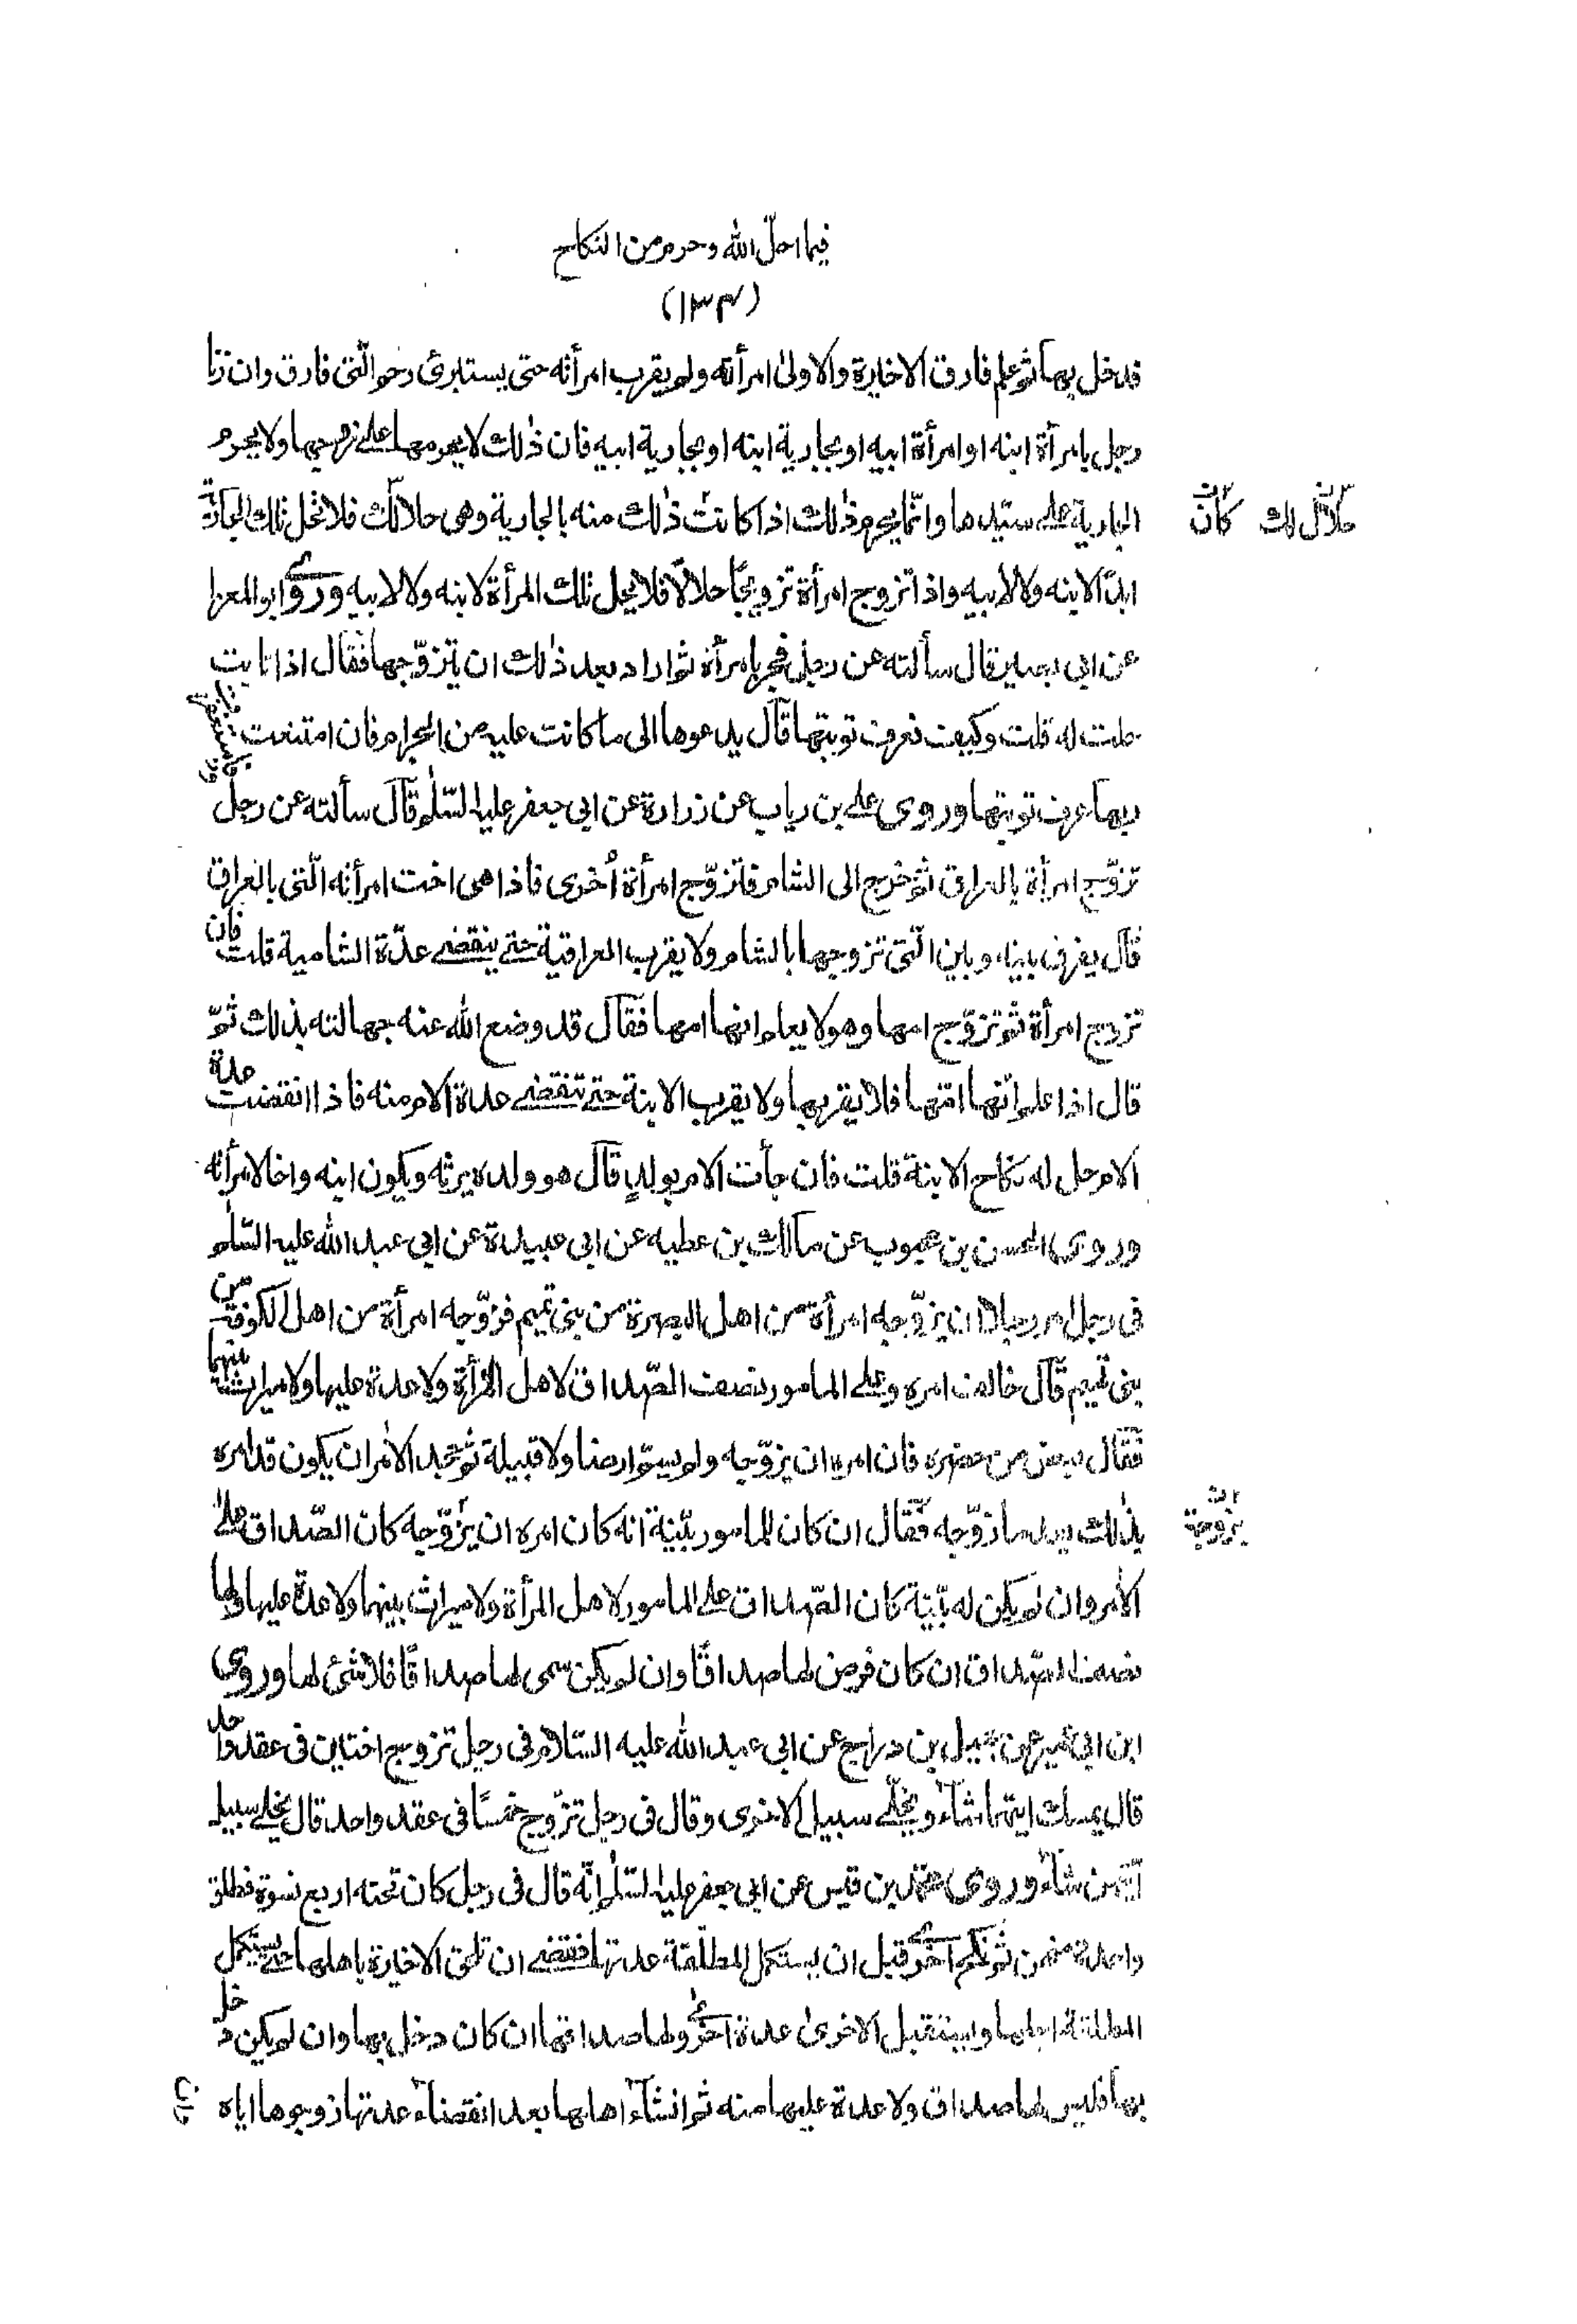 فيما احلّ الله وحرم من النكاح
(١٣٤)
فدخل بها ثم علم فارق الاخيرة والاولى امرأته ولم يقرب امرأته حتى يستبرئ رحم الّتى فارق وان زنا
رجل بامرأة ابنه او امرأة ابيه او بجارية ابنه او بجارية ابيه فان ذلك لا يحرمها على زوجها ولا يحرم
الجارية على سيّدها وانّما يحرم ذلك اذا كانت ذلك منه بالجارية وهى حلال لك فلا تحل تلك الجارية
حلال لك كان
ابدًا لابنه ولا لابيه واذا تزوج امرأة تزويجًا حلالًا فلا يحل تلك المرأة لابنه ولا لابيه وروى ابو المعزا
عن ابى بصير قال سألته عن رجل فجر بامرأة ثم اراد بعد ذلك ان يتزوّجها فقال اذا تابت
حلت له قلت وكيف تعرف توبتها قال يدعوها الى ما كانت عليه من الحرام فان امتنعت
فاستغفرت
ربها عرف توبتها وروى على بن رياب عن زرارة عن ابى جعفر عليه السّلم قال سألته عن رجل
تزوّج امرأة بالعراق ثم خرج الى الشام فتزوّج امرأة أخرى فاذا هى اخت امرأته الّتى بالعراق
قال يفرق بينه وبين الّتى تزوجها بالشام ولا يقرب العراقية حتى ينقضى عدّة الشامية قلت فان
تزوج امرأة ثم تزوّج امها وهو لا يعلم انها امها فقال قد وضع الله عنه جهالته بذلك ثمّ
قال اذا علم انّها امّها فلا يقربها ولا يقرب الابنة حتى تنقضى عدة الام منه فاذا انقضت عدة
الام حل له نكاح الابنة قلت فان جأت الام بولدٍ قال هو ولده يرثه ويكون ابنه واخا لامرأته
وروى الحسن بن محبوب عن مالك بن عطيه عن ابى عبيدة عن ابى عبد الله عليه السّلم
فى رجل امر رجلا ان يزوّجه امرأة من اهل البصرة من بنى تميم فزوّجه امرأة من اهل الكوفة من
بنى تميم قال خالف امره وعلى المامور نصف الصّداق لاهل المرأة ولا عدة عليها ولا ميراث بينهما
فقال بعض من حضره فان امره ان يزوّجه ولم يسمّ ارضا ولا قبيلة ثم جحد الامر ان يكون قد امره
بذلك بعد ما زوّجه فقال ان كان للمامور بيّنة انه كان امره ان يزوّجه كان الصّداق على
يزوّجه
الامر وان لم يكن له بيّنة كان الصّداق على المامور لاهل المرأة ولا ميراث بينهما ولا عدة عليها ولها
نصف الصّداق ان كان فرض لها صداقًا وان لم يكن سمى لها صداقًا فلا شئ لها وروى
ابن ابى عمير عن جميل بن دراج عن ابى عبد الله عليه السّلام فى رجل تزوج اختين فى عقد واحد
قال يمسك ايتهما شاء ويخلّى سبيل الاخرى وقال فى رجل تزوّج خمسًا فى عقد واحد قال يخلى سبيل
ايّتهن شاء وروى محمّد بن قيس عن ابى جعفر عليه السّلم انّه قال فى رجل كان تحته اربع نسوة فطلق
واحدة منهن ثم نكح اخرى قبل ان يستكمل المطلّقة عدتها فقضى ان تلحق الاخيرة باهلها حتى يستكمل
المطلقة اجلها ويستقبل الاخرى عدة اخرى ولها صداقها ان كان دخل بها وان لم يكن دخل
بها فليس لها صداق ولا عدة عليها منه ثم ان شاء اهلها بعد انقضاء عدتها زوجوها اياه
وان